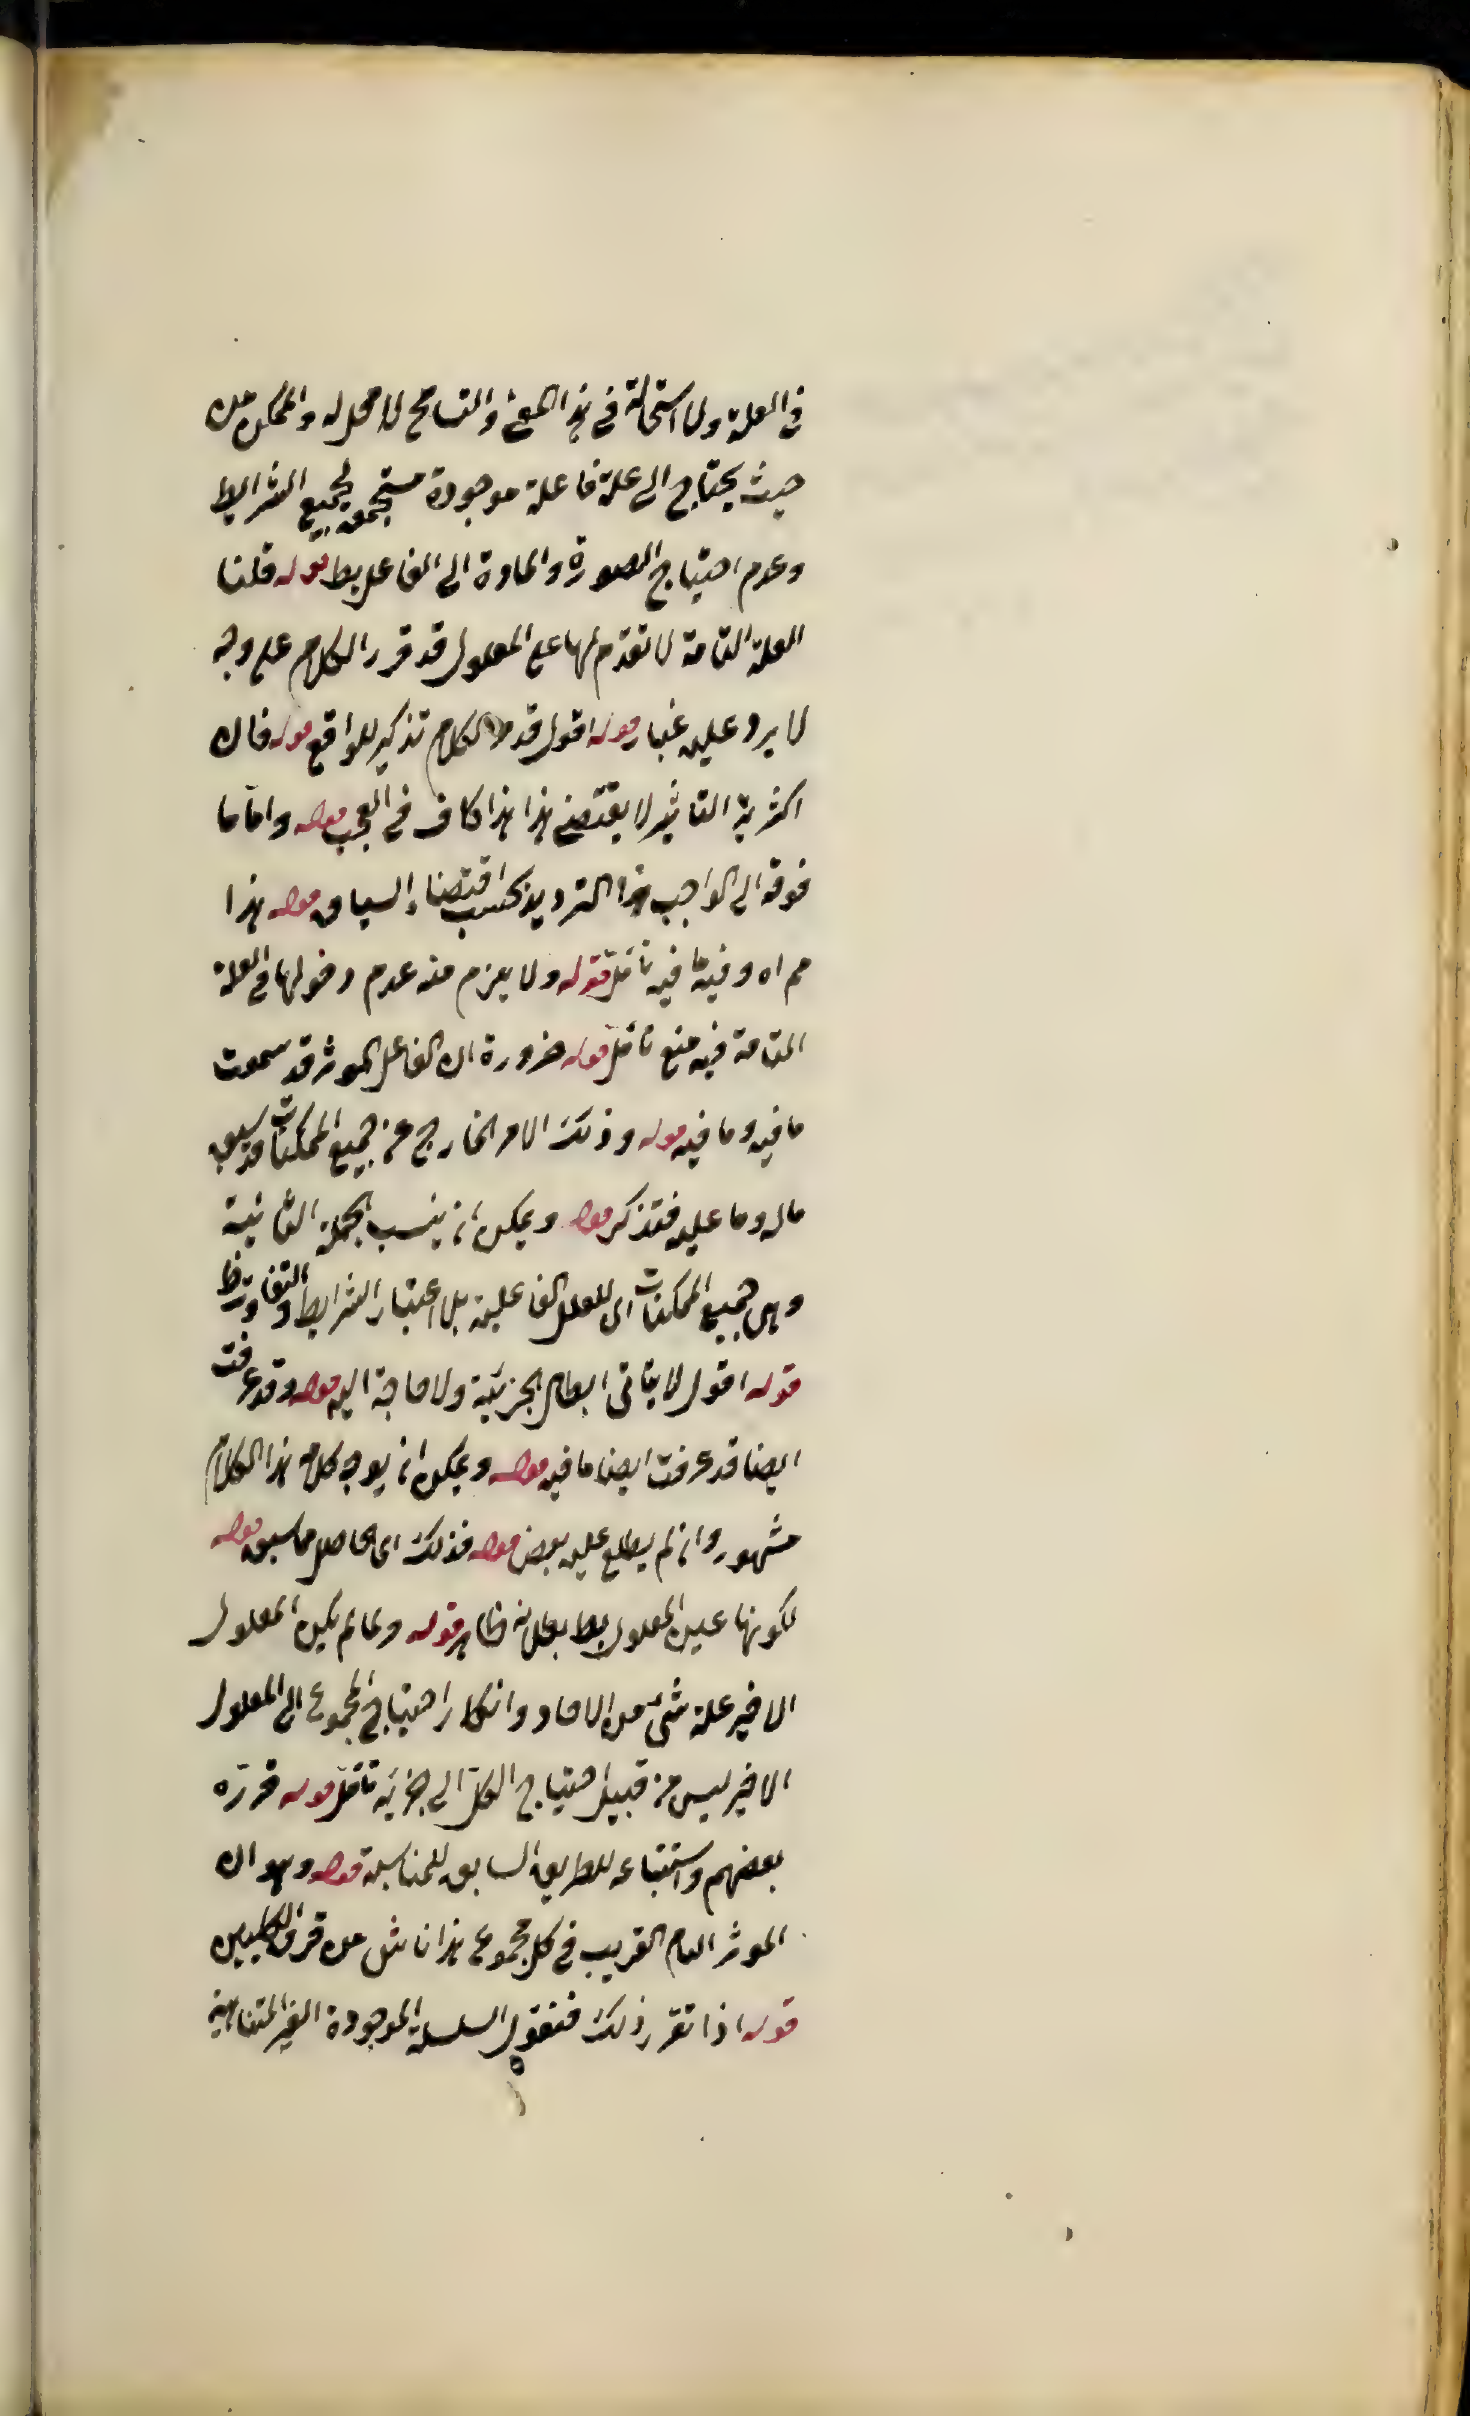 في العلة ولا استحالة في هذا المعنى والتسامح لا محل له والممكن من
حيث يحتاج الى علة فاعلة موجودة مستجمعه لجميع الشرايط
وعدم احتياج الصورة والمادة الى الفاعل بط قوله قلنا
العلة التامة لا تقدم لها على المعلول قد قرر الكلام على وجه
لا يرد عليه غبار قوله اقول قد مر الكلام تذكير للواقع قوله فان
اكثرية التاثير لا يقتضي هذا هذا كاف في العجب قوله واما ما
فوقه الى الواجب هذا الترديد بحسب اقتضاء السياق قوله هذا
مم اه وفيه ما فيه تأمل قوله ولا يلزم منه عدم دخولها في العلة
التامة فيه منع تأمل قوله ضرورة ان الفاعل الموثر قد سمعت
ما فيه وما فيه قوله وذلك الامر الخارج عن جميع الممكنات قد سبق
ماله وما عليه فتذكر قوله ويمكن ان ينسب الجملة الثانية
وهي جميع الممكنات الى العلل الفاعلية بلا اعتبار الشرايط والتفاوت ظ
قوله اقول لا ينافي ابطال الجزئية ولا حاجة اليه قوله وقد عرفت
ايضا قد عرفت ايضا ما فيه قوله ويمكن ان يوجه كلام هذا الكلام
مشهور وان لم يطلع عليه بعض قوله فذلك اى الحاصل مما سبق قوله
لكونها عين المعلول بط بطلانه ظاهر قوله وعالم يكن المعلول
الاخير علة شئ من الاحاد وانكار احتياج المجموع الى المعلول
الاخير ليس من قبيل احتياج الكل الى جزئه تأمل قوله قرره
بعضهم واستتباعه للطريق السابق للمناسبة قوله وهو ان
الموثر التام القريب في كل مجموع هذا ناش من فرق الكليين
قوله اذا تقرر ذلك فنقول السلسلة الموجودة الغير المتناهية